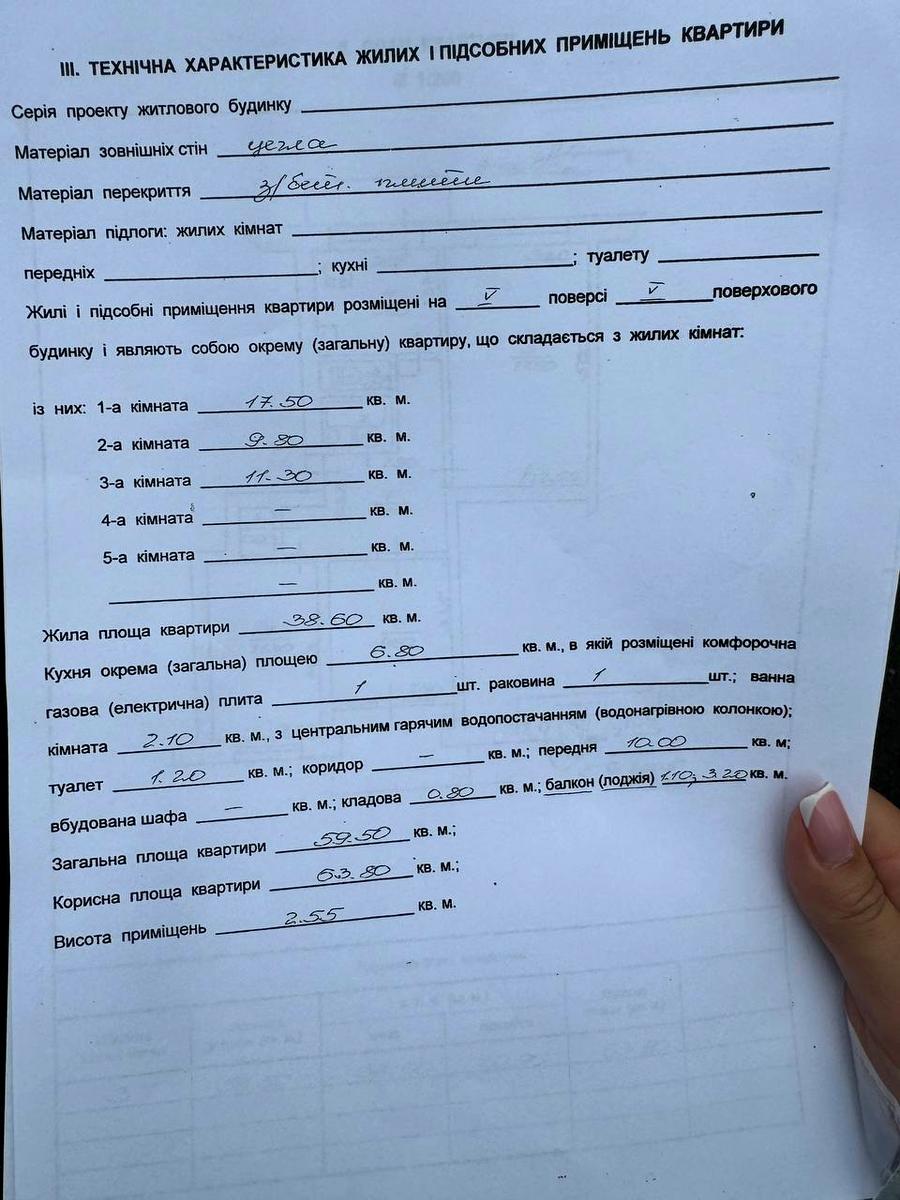 III. ТЕХНІЧНА ХАРАКТЕРИСТИКА ЖИЛИХ І ПІДСОБНИХ ПРИМІЩЕНЬ КВАРТИРИ
Серія проекту житлового будинку
Матеріал зовнішніх стін цегла
Матеріал перекриття з/бет. плити
Матеріал підлоги: жилих кімнат
передніх ; кухні ; туалету
Жилі і підсобні приміщення квартири розміщені на V поверсі V поверхового
будинку і являють собою окрему (загальну) квартиру, що складається з жилих кімнат:
із них: 1-а кімната 17.50 кв. м.
2-а кімната 9.80 кв. м.
3-а кімната 11.30 кв. м.
4-а кімната — кв. м.
5-а кімната — кв. м.
— кв. м.
Жила площа квартири 38.60 кв. м.
Кухня окрема (загальна) площею 6.80 кв. м., в якій розміщені комфорочна
газова (електрична) плита 1 шт. раковина 1 шт.; ванна
кімната 2.10 кв. м., з центральним гарячим водопостачанням (водонагрівною колонкою);
туалет 1.20 кв. м.; коридор — кв. м.; передня 10.00 кв. м;
вбудована шафа — кв. м.; кладова 0.80 кв. м.; балкон (лоджія) 1.10; 3.20 кв. м.
Загальна площа квартири 59.50 кв. м.;
Корисна площа квартири 63.80 кв. м.;
Висота приміщень 2.55 кв. м.